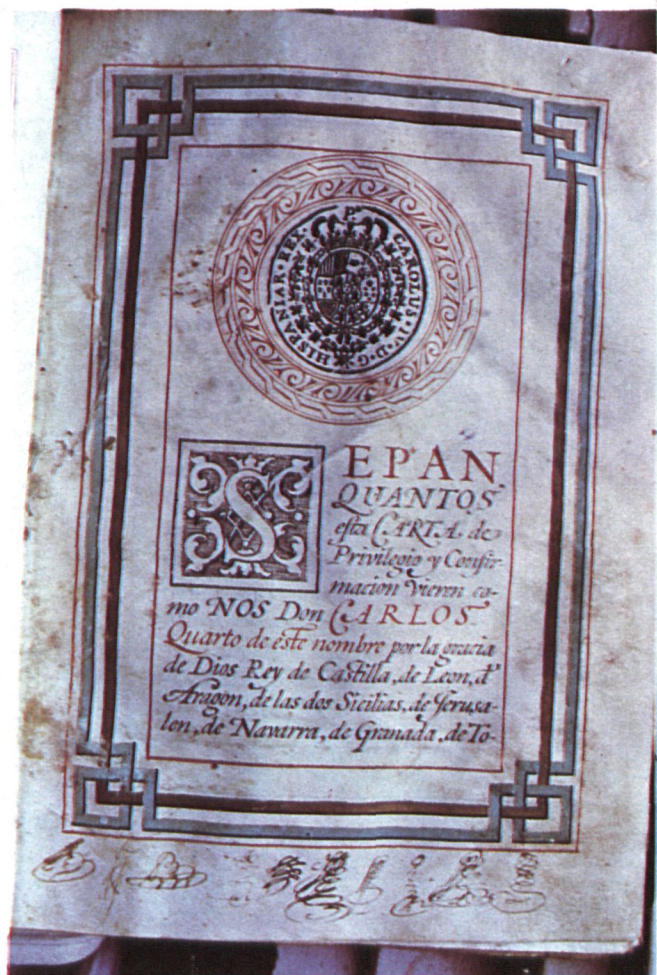 P.
CAROLUS·IV·D·G·HISPANIAR·REX·
SEPAN
QUANTOS
esta CARTA de
Privilegio y Confir-
macion vieren co-
mo NOS Don CARLOS
Quarto de este nombre por la gracia
de Dios Rey de Castilla, de Leon, de
Aragon, de las dos Sicilias, de Jerusa-
len, de Navarra, de Granada, de To-